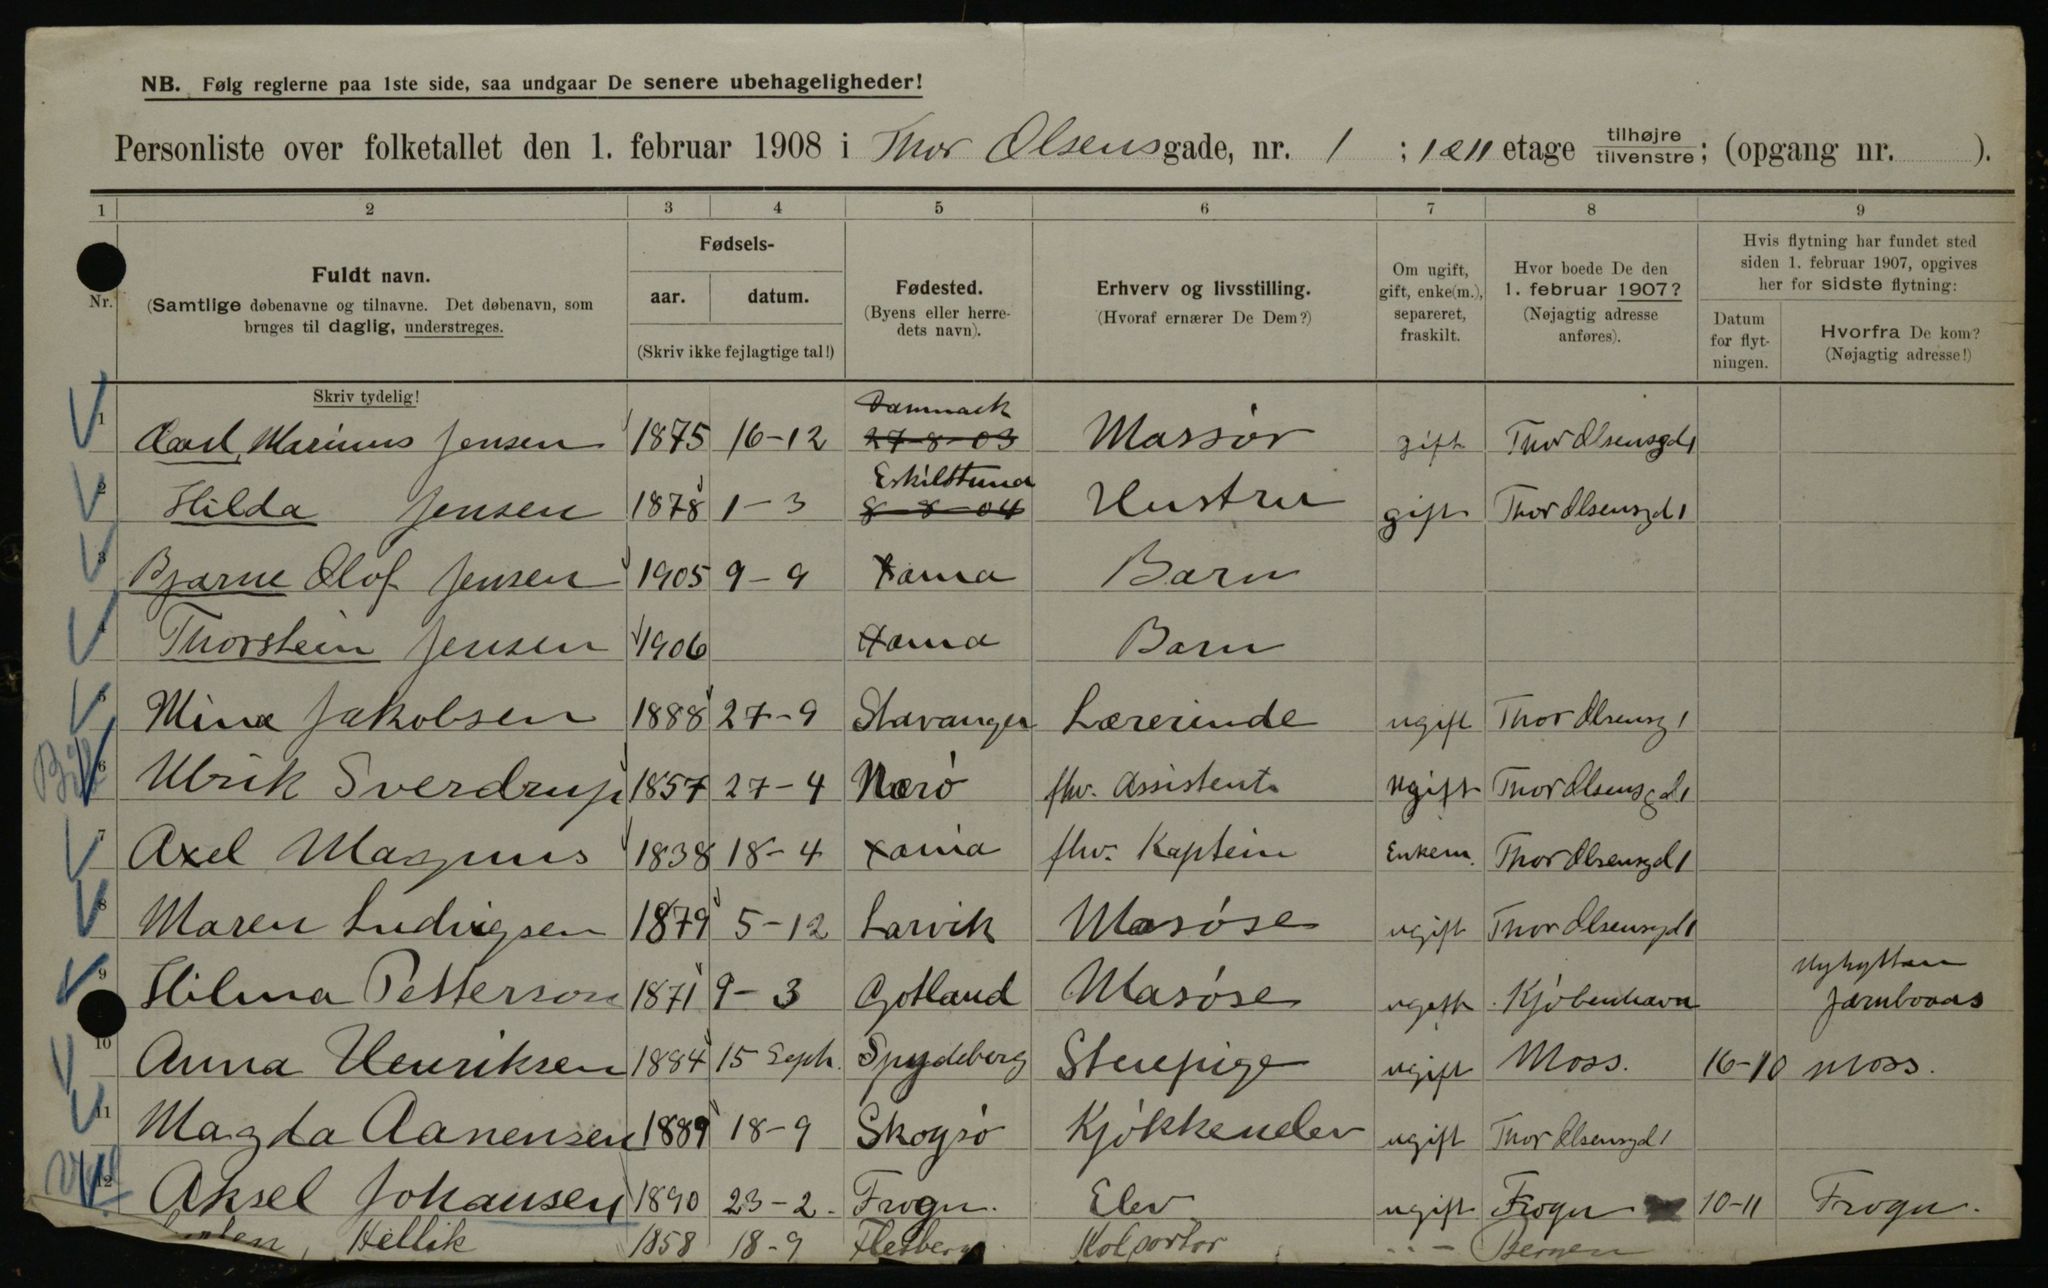 NB. Følg reglerne paa 1ste side, saa undgaar De senere ubehageligheder!
Personliste over folketallet den 1. februar 1908 i Thor Olsens gade, nr. 1 ; 1 & 11 etage tilhøjre / tilvenstre; (opgang nr. ).
1 2 3 4 5 6 7 8 9
Nr. Fuldt navn. (Samtlige døbenavne og tilnavne. Det døbenavn, som bruges til daglig, understreges.
Fødsels- aar. datum. (Skriv ikke fejlagtige tal!)
Fødested. (Byens eller herredets navn).
Erhverv og livsstilling. (Hvoraf ernærer De Dem?)
Om ugift, gift, enke(m.), separeret, fraskilt.
Hvor boede De den 1. februar 1907? (Nøjagtig adresse anføres).
Hvis flytning har fundet sted siden 1. februar 1907, opgives her for sidste flytning:
Datum for flytningen. Hvorfra De kom? (Nøjagtig adresse!)
Skriv tydelig!
1 Carl, Marinus Jensen 1875 16-12 Danmark 27-8-03 Massør gift Thor Olsensgd 1
2 Hilda Jensen 1878 1-3 Eskilstuna 8-8-04 Hustru gift Thor Olsensgd 1
3 Bjarne Olof Jensen 1905 9-9 Xania Barn
4 Thorstein Jensen 1906 Xania Barn
5 Mina Jakobsen 1888 27-9 Stavanger Lærerinde ugift Thor Olsensg 1
6 Ulrik Sverdrup 1857 27-4 Nærø fhv. Assistent ugift Thor Olsensgd 1
7 Axel Magnus 1838 18-4 Xania fhv. Kaptein Enkem. Thor Olsensgd 1
8 Maren Ludvigsen 1879 5-12 Larvik Masøse ugift Thor Olsensgd 1
9 Hilma Petterson 1871 9-3 Gotland Masøse ugift Kjøbenhavn Nyhyttan Jærnboaas
10 Anna Henriksen 1884 15 Sept. Spydeberg Stuepige ugift Moss. 16-10 Moss.
11 Magda Aanensen 1889 18-9 Skogsø Kjøkkenelev ugift Thor Olsensgd 1
12 Aksel Johansen 1890 23-2. Frogn. Elev ugift Frogn 10-11 Frogn.
Hellik 1858 18-9 Flesberg Kolportør Bergen